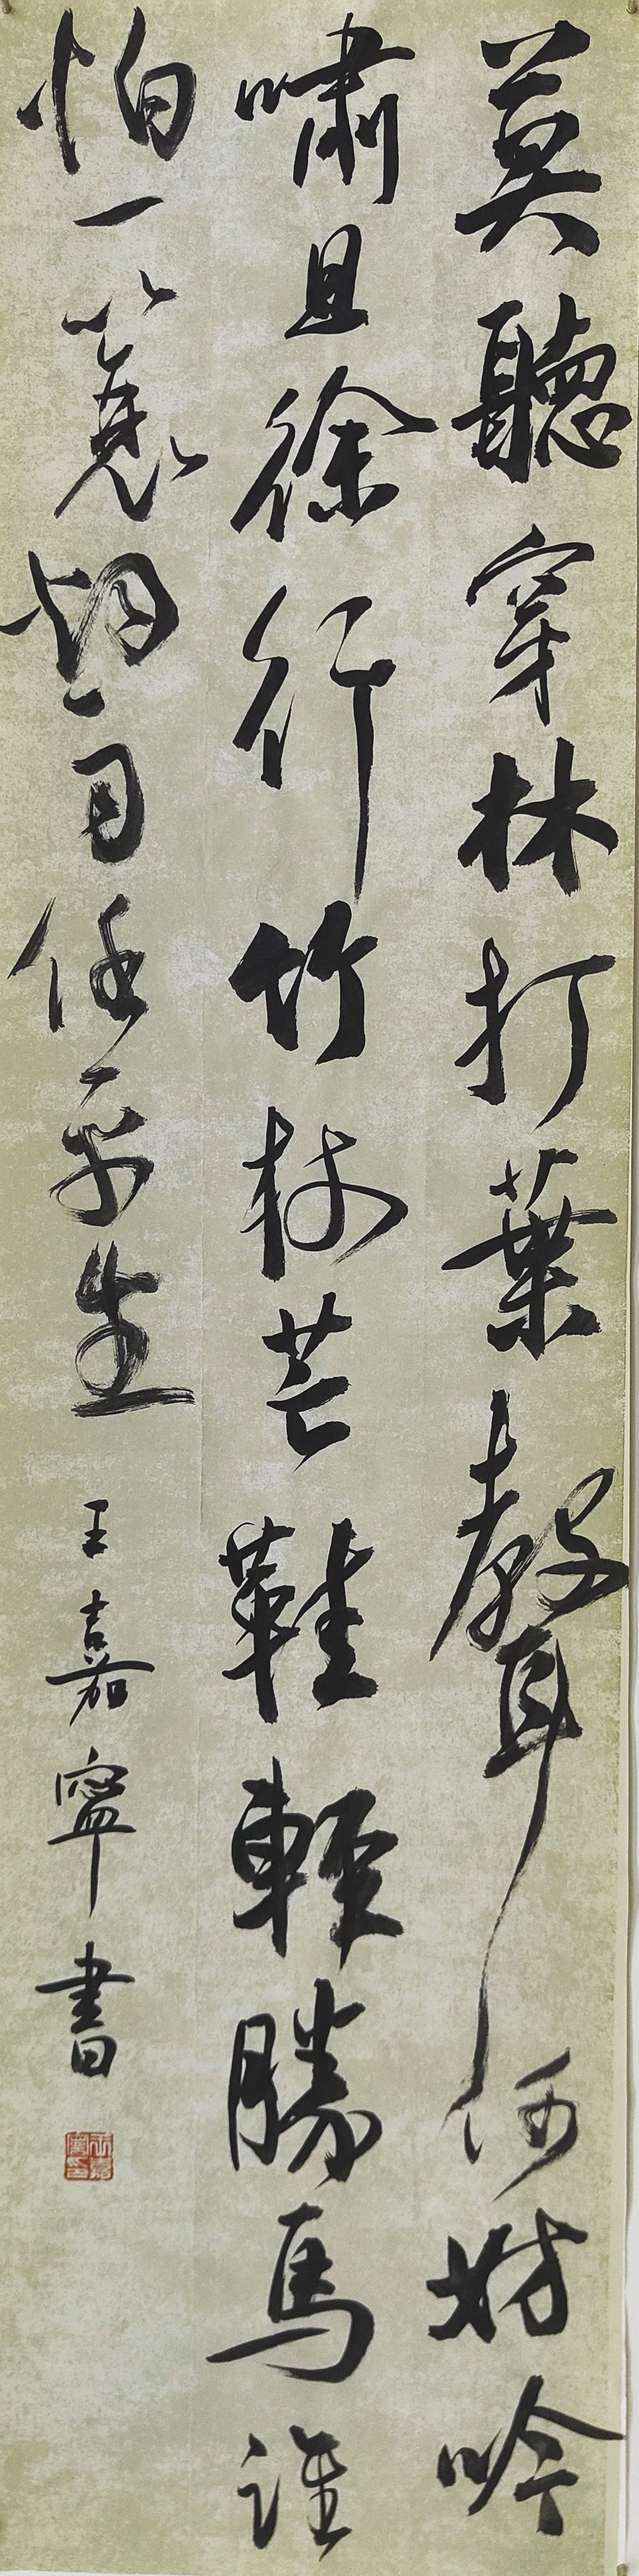 莫聽穿林打葉聲何妨吟
嘯且徐行竹杖芒鞋輕勝馬誰
怕一蓑烟雨任平生
王嘉寧書